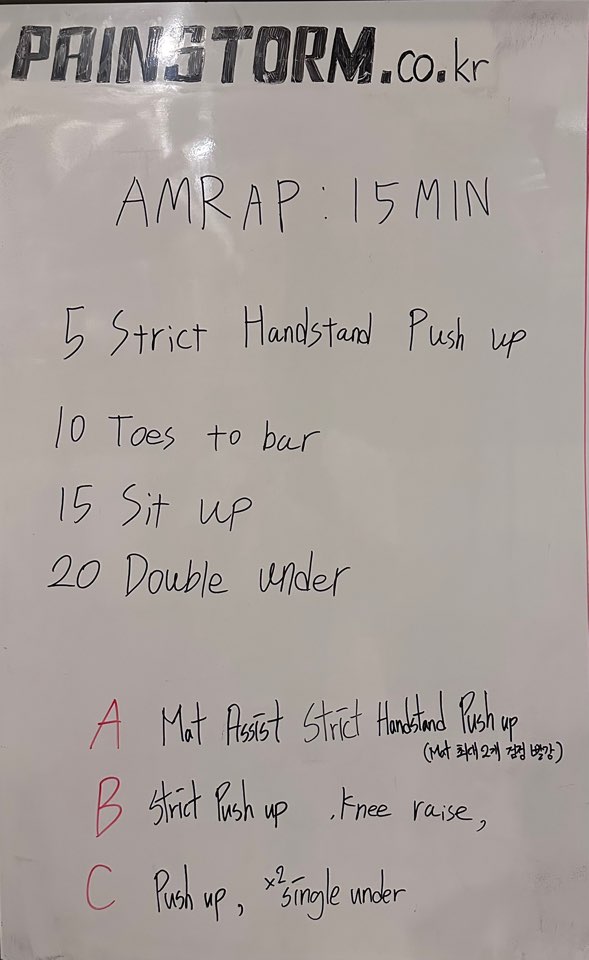 PAINSTORM.co.kr
AMRAP : 15 MIN
5 Strict Handstand Push up
10 Toes to bar
15 Sit up
20 Double under
A Mat Assist Strict Handstand Push up
(Mat 최대 2개 검정 빨강)
B Strict Push up . Knee raise,
C Push up, x2 single under